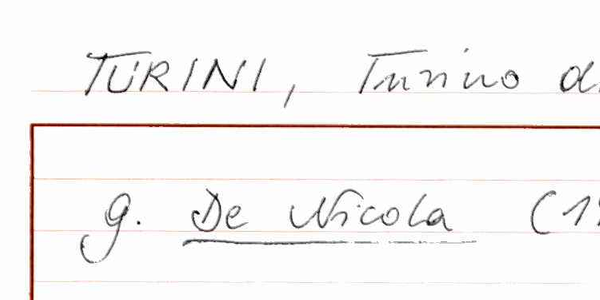 TURINI, Turino d
G. De Nicola (19